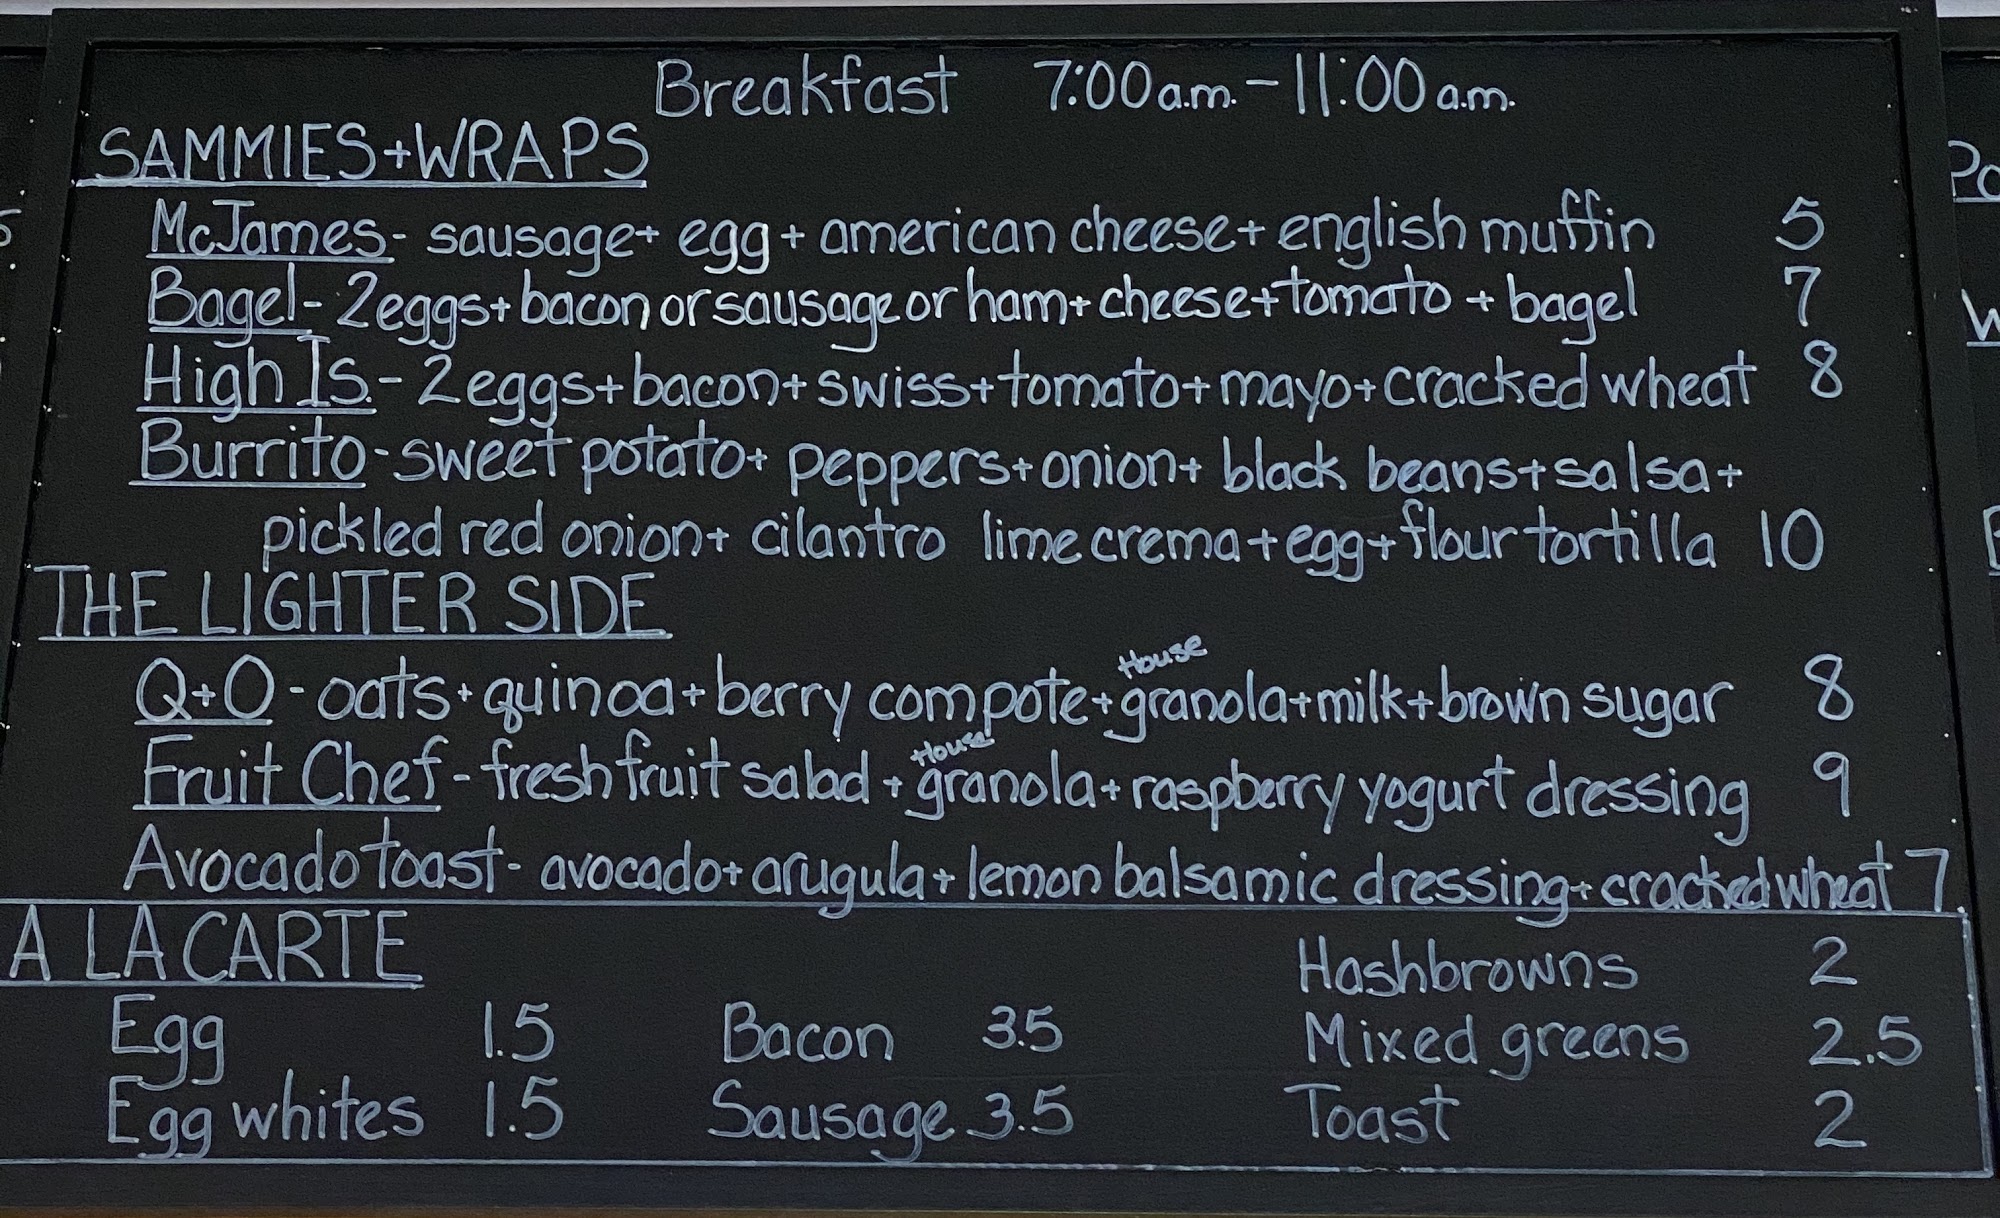 Breakfast 7:00 a.m. - 11:00 a.m.
SAMMIES + WRAPS
McJames - sausage + egg + american cheese + english muffin 5
Bagel - 2 eggs + bacon or sausage or ham + cheese + tomato + bagel 7
High Is. - 2 eggs + bacon + swiss + tomato + mayo + cracked wheat 8
Burrito - sweet potato + peppers + onion + black beans + salsa +
pickled red onion + cilantro lime crema + egg + flour tortilla 10
THE LIGHTER SIDE
Q+O - oats + quinoa + berry compote + House granola + milk + brown sugar 8
Fruit Chef - fresh fruit salad + House granola + raspberry yogurt dressing 9
Avocado toast - avocado + arugula + lemon balsamic dressing + cracked wheat 7
A LA CARTE
Hashbrowns 2
Egg 1.5 Bacon 3.5 Mixed greens 2.5
Egg whites 1.5 Sausage 3.5 Toast 2